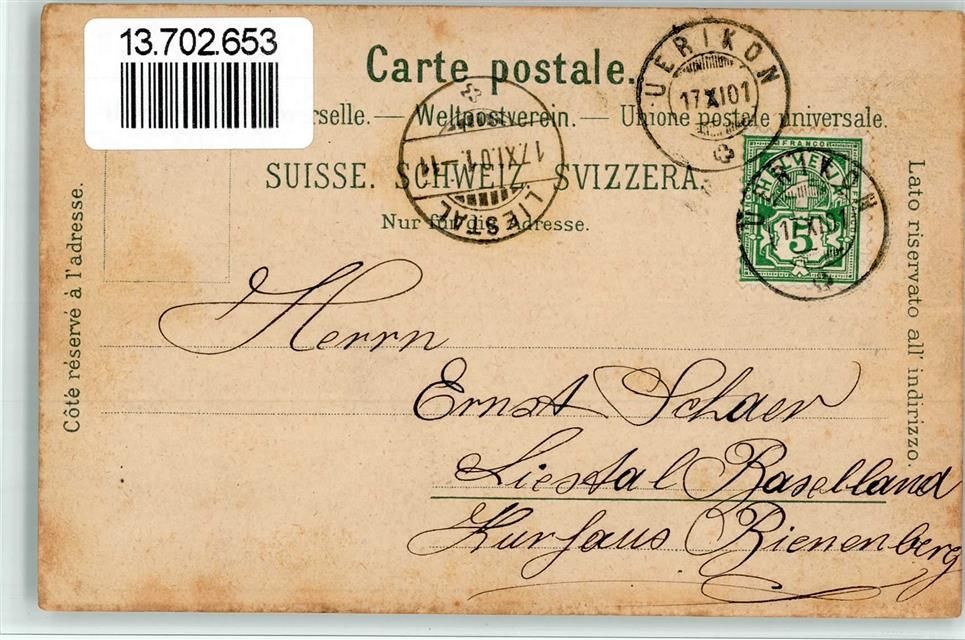 13.702.653
Carte postale.
rselle. — Weltpostverein. — Unione postale universale.
SUISSE. SCHWEIZ. SVIZZERA.
Nur für die Adresse.
Côté réservé à l'adresse.
Lato riservato all' indirizzo.
UERIKON
17 XI 01
LIESTAL
17.XI.01.-11
FRANCO
HELVETIA
5
UERIKON
17 XI 01
Herrn
Ernst Schaer
Liestal Baselland
Kurhaus Bienenberg